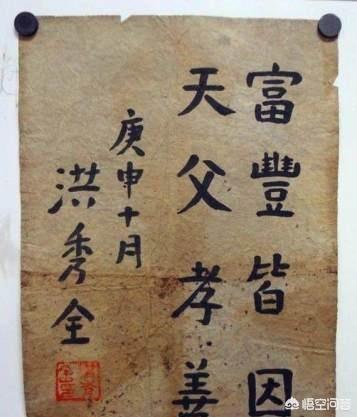 富豐皆因
天父孝
庚申十月
洪秀全
悟空问答